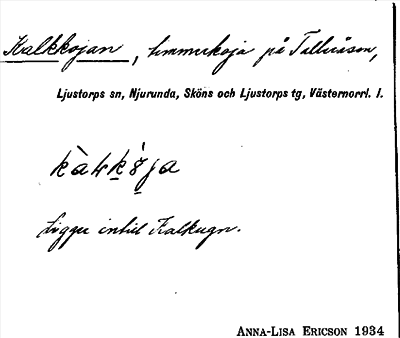 Kalkkojan, timmerkoja på Tallråsen,
Ljustorps sn, Njurunda, Sköns och Ljustorps tg, Västernorrl. l.
Ligger intill Kalkugn.
ANNA-LISA ERICSON 1934